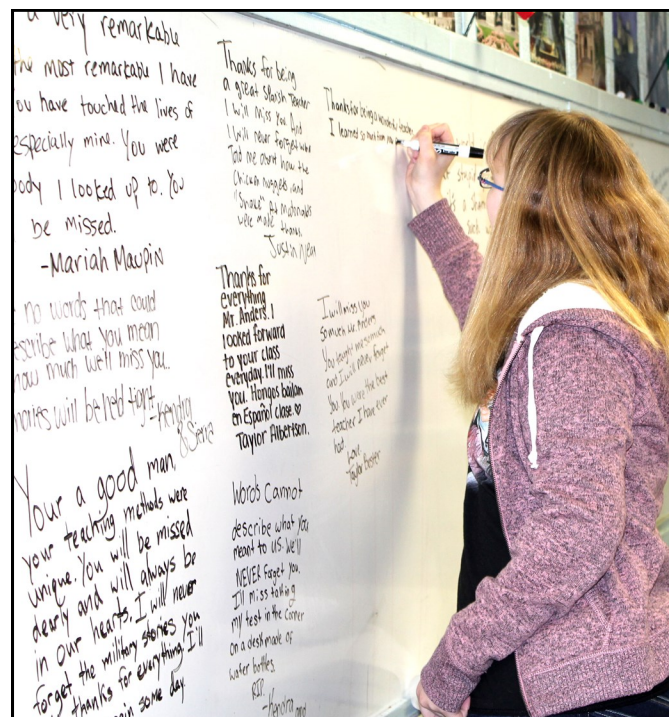 a very remarkable
the most remarkable I have
ou have touched the lives of
especially mine. You were
body I looked up to. You
be missed.
-Mariah Maupin
no words that could
escribe what you mean
how much we'll miss you..
mories will be held tight -Kendra
& Sierra
Your a good man,
your teaching methods were
unique. You will be missed
dearly and will always be
in our hearts. I will never
forget the military stories you
thanks for everything, I'll
again some day
Thanks for being
a great Spanish Teacher
I will miss you And
I will never forget who
Told me about how the
Chicken nuggets and
"Snake" At McDonalds
were made thanks.
Justin
Thanks for
everything
Mr. Anders. I
looked forward
to your class
everyday. I'll miss
you. Hongos bailan
en Español clase. ♡
Taylor Albertson.
Words Cannot
describe what you
meant to us. We'll
NEVER forget you.
I'll miss taking
my test in the corner
on a desk made of
water bottles.
RIP.
-Kendra and
Thanks for being a wonderful teacher
I learned so much from you
I will miss you
so much Mr. Anders
You taught me so much
and I will never forget
you You were the best
teacher I have ever
had.
Love
Taylor